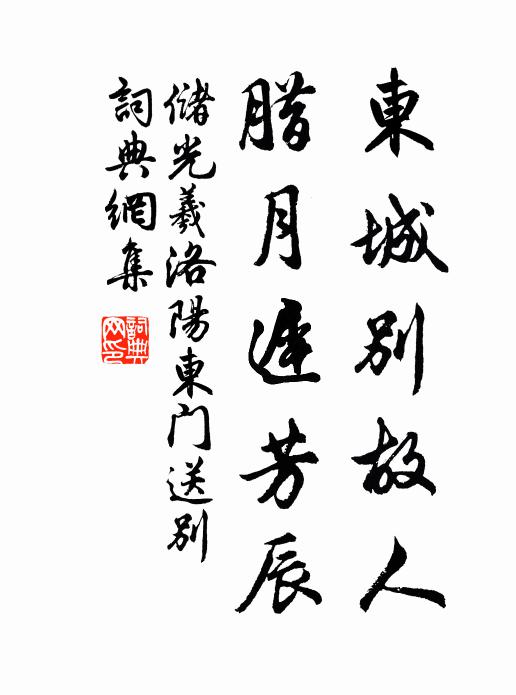 東城別故人
腊月遲芳辰
儲光羲洛陽東門送別
詞典網集
詞典
网印